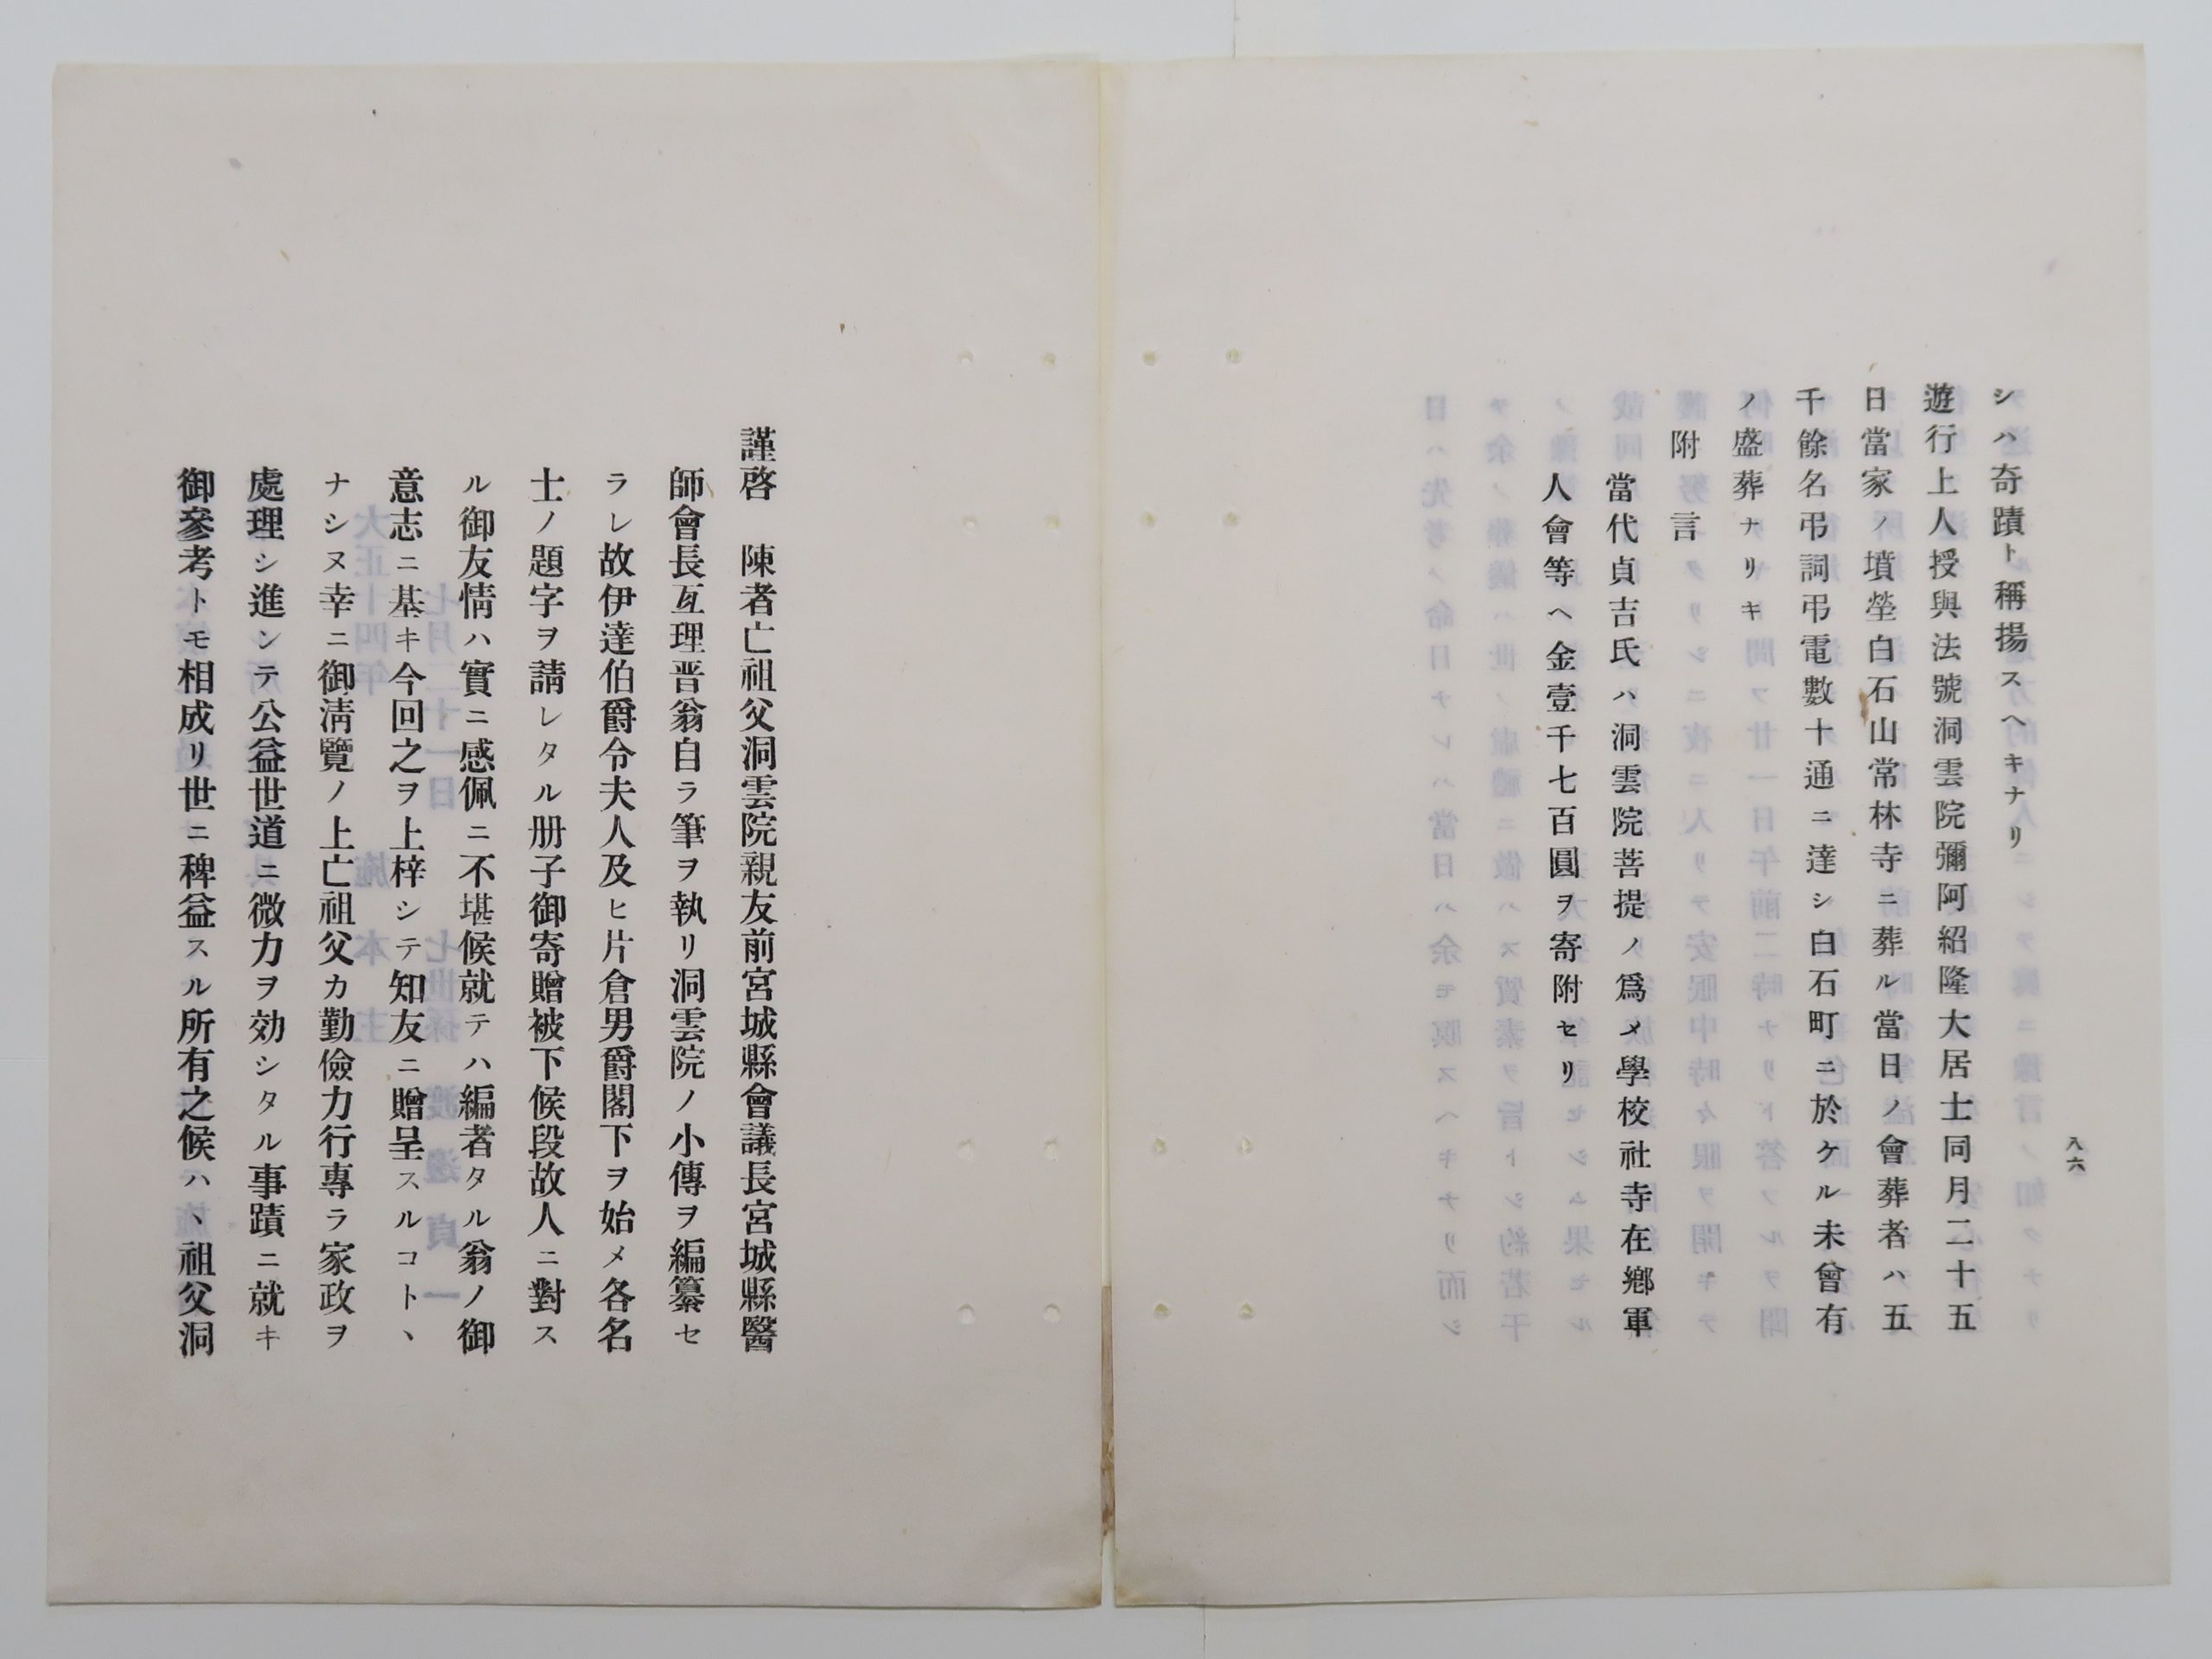 八六
シハ奇蹟ト稱揚スヘキナリ
遊行上人授與法號洞雲院彌阿紹隆大居士同月二十五
日當家ノ墳塋白石山常林寺ニ葬ル當日ノ會葬者ハ五
千餘名弔詞弔電數十通ニ達シ白石町ニ於ケル未曾有
ノ盛葬ナリキ
附言
當代貞吉氏ハ洞雲院菩提ノ爲メ學校社寺在鄕軍
人會等ヘ金壹千七百圓ヲ寄附セリ
謹啓　陳者亡祖父洞雲院親友前宮城縣會議長宮城縣醫
師會長亙理晋翁自ラ筆ヲ執リ洞雲院ノ小傳ヲ編纂セ
ラレ故伊達伯爵令夫人及ヒ片倉男爵閣下ヲ始メ各名
士ノ題字ヲ請レタル册子御寄贈被下候段故人ニ對ス
ル御友情ハ實ニ感佩ニ不堪候就テハ編者タル翁ノ御
意志ニ基キ今回之ヲ上梓シテ知友ニ贈呈スルコトヽ
ナシヌ幸ニ御淸覽ノ上亡祖父カ勤儉力行專ラ家政ヲ
處理シ進ンテ公益世道ニ微力ヲ効シタル事蹟ニ就キ
御參考トモ相成リ世ニ稗益スル所有之候ハヽ祖父洞